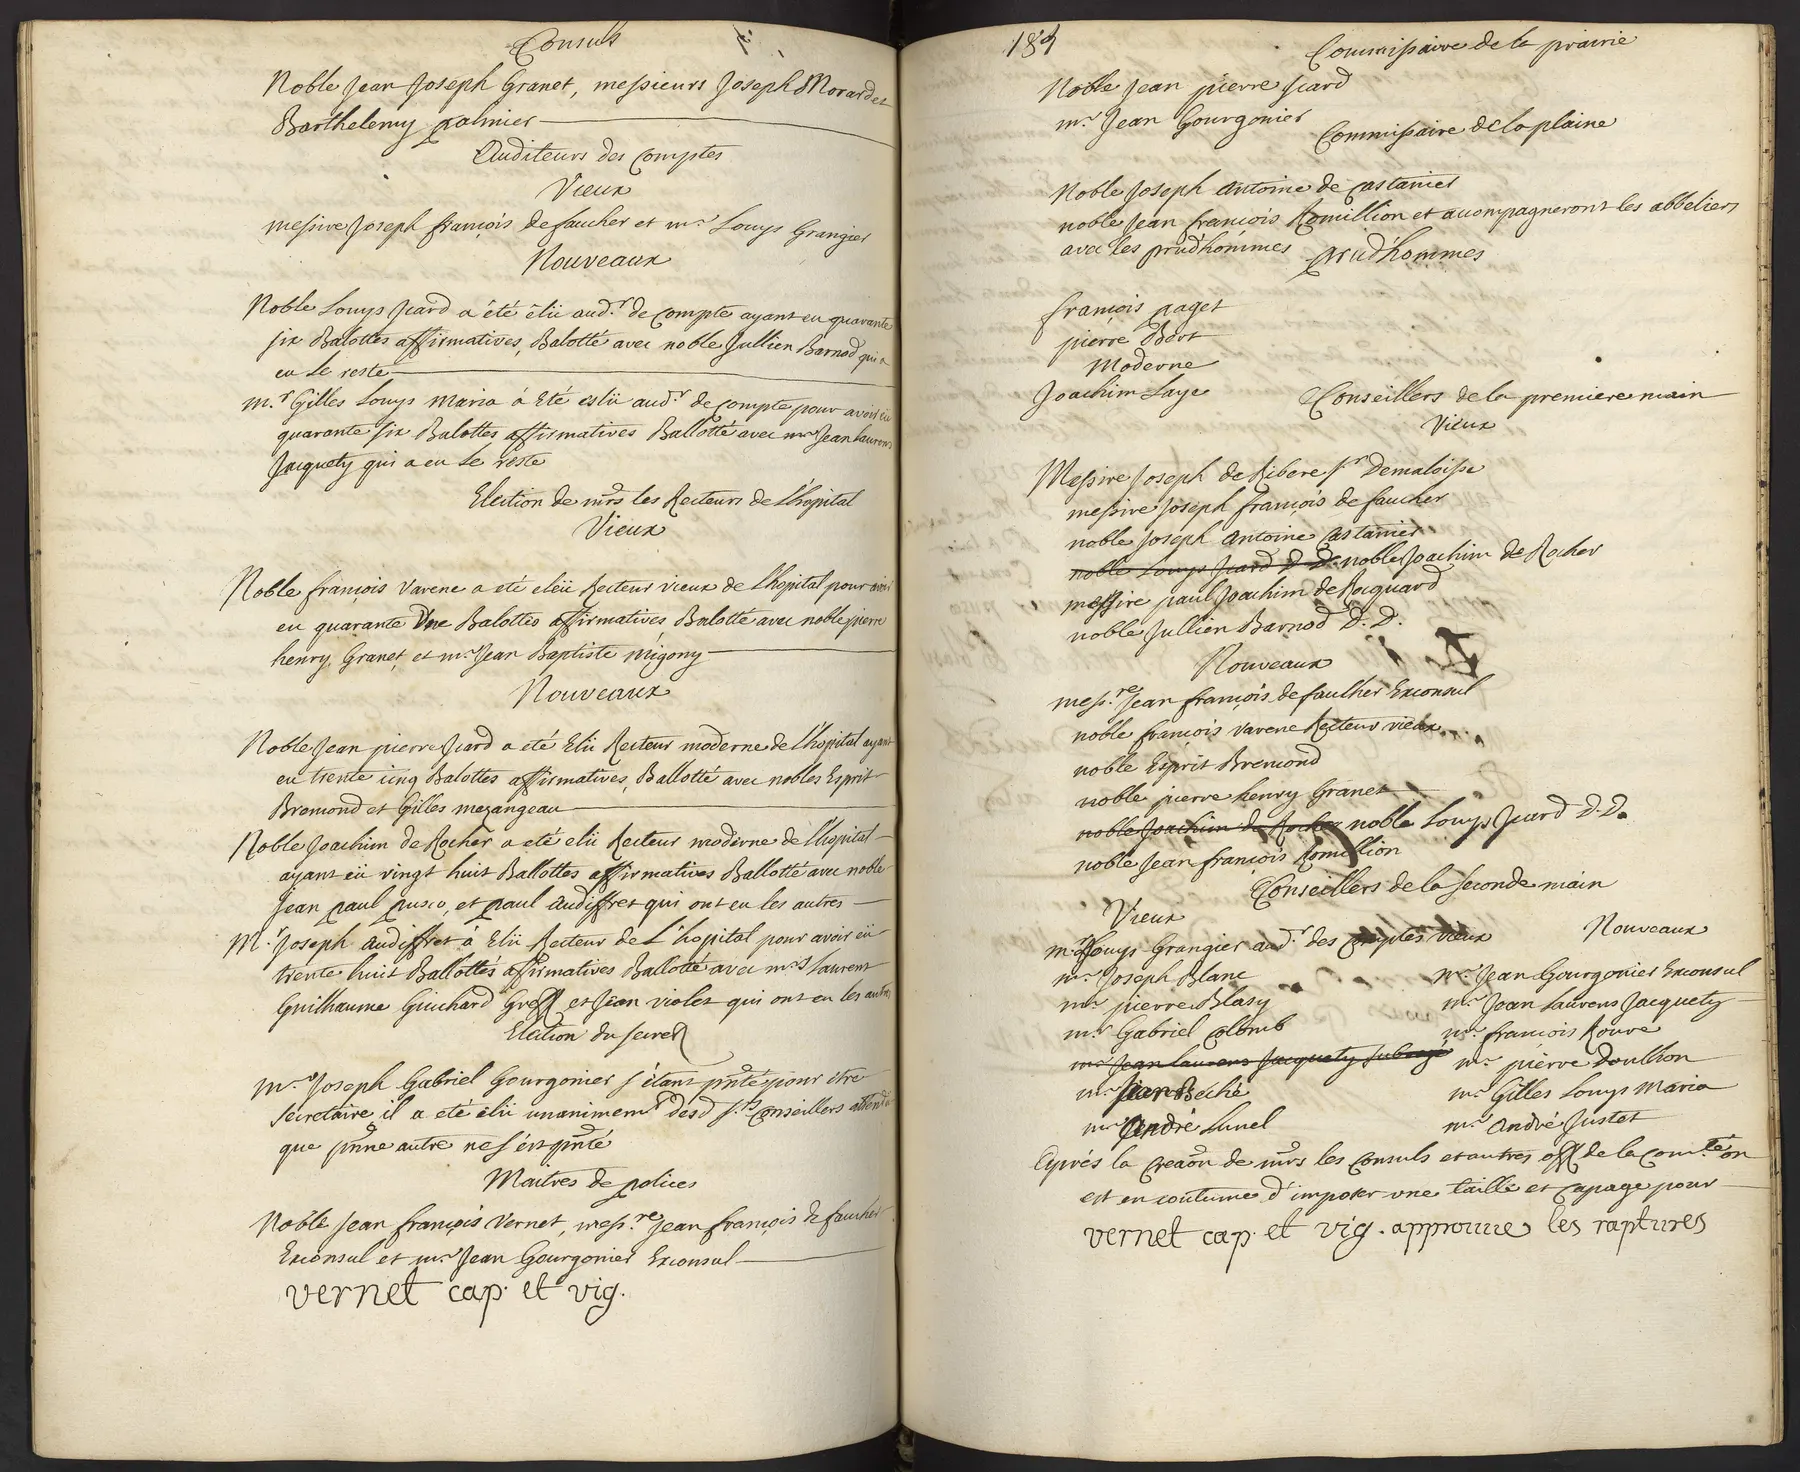 Consuls
Noble Jean Joseph Granet, messieurs Joseph Morardet
Barthelemy palmier
Auditeurs des Comptes
Vieux
messire Joseph françois de faucher et mr Louys Grangier
Nouveaux
Noble Louys Jcard a été élü audr de compte ayant eu quarante
six Balottes affirmatives, Balotté avec noble Jullien Barnod qui a
eu le reste
mr Gilles Louys Maria à Eté eslü audr de compte pour avoir eü
quarante six Balottes affirmatives Ballotté avec mr Jean Laurens
Jacquety qui a eu le reste
Election de mrs les Recteurs de L'hopital
Vieux
Noble françois Varene a eté elëu Recteur vieux de L'hopital pour avoir
eu quarante Une Balottes affirmatives Balotté avec noble pierre
henry Granet et mr Jean Baptiste migony
Nouveaux
Noble Jean pierre Jcard a eté Elü Recteur moderne de L'hopital ayant
eu trente cinq Balottes affirmatives, Ballotté avec nobles Esprit
Bremond et Gilles mezangeau
Noble Joachim de Rocher a eté elü Recteur moderne de L'hopital
ayant eü vingt huit Ballottes affirmatives Ballotté avec noble
Jean paul et paul audiffret qui ont eu les autres
Mr Joseph audiffret à Elü Recteur de L'hopital pour avoir eü
trente huit Ballottés affirmatives Ballotté avec mrs Laurent
Guilhaume Guichard Greff et Jean violet qui ont eu les autres
Election du secret
Mr Joseph Gabriel Gourgonier s'étant pnté pour être
secretaire il a eté élü unanimemt desd srs Conseillers attendu
que pnne autre ne s'est pnté
Maitres de polices
Noble Jean françois Vernet, messre Jean françois de faucher
Exconsul et mr Jean Gourgonier Exconsul
vernet cap. et vig.
189
Commissaire de la prairie
Noble Jean pierre Jcard
mr Jean Gourgonier
Commissaire de la plaine
Noble Joseph Antoine de Castanier
noble Jean françois Romillion et acompagneront les abbeliers
avec les prud'hommes
prud'hommes
françois paget
pierre Bert
Moderne
Joachim Laye
Conseillers de la premiere main
Vieux
Messire Joseph de Ribere sr Demaloisse
messire Joseph françois de faucher
noble Joseph Antoine Castanier
noble Louys Jcard D. D. noble Joachim de Rocher
messire paul Joachim de Rocquard
noble Jullien Barnod D. D.
Nouveaux
messre Jean françois de faulher Exconsul
noble françois varene Recteur vieux
noble Esprit Bremond
noble pierre henry Granet
noble Joachim de Rocher noble Louys Jcard D. D.
noble Jean françois Romillion
Conseillers de la seconde main
Vieux
mr Louys Grangier audr des comptes vieux
mr Joseph Blanc
mr pierre Blasy
mr Gabriel Colomb
mr Jean laurens Jacquety subrogé
mr Jean Beché
mr André Lunel
Nouveaux
mr Jean Gourgonier Exconsul
mr Jean Laurens Jacquety
mr françois Rouvre
mr pierre doulhon
mr Gilles Louys Maria
mr André Justet
Aprés la creaõn de mrs les Consuls et autres off de la comtéon
est en coutume d'imposer une taille et capage pour
vernet cap. et vig. approuue les raptures